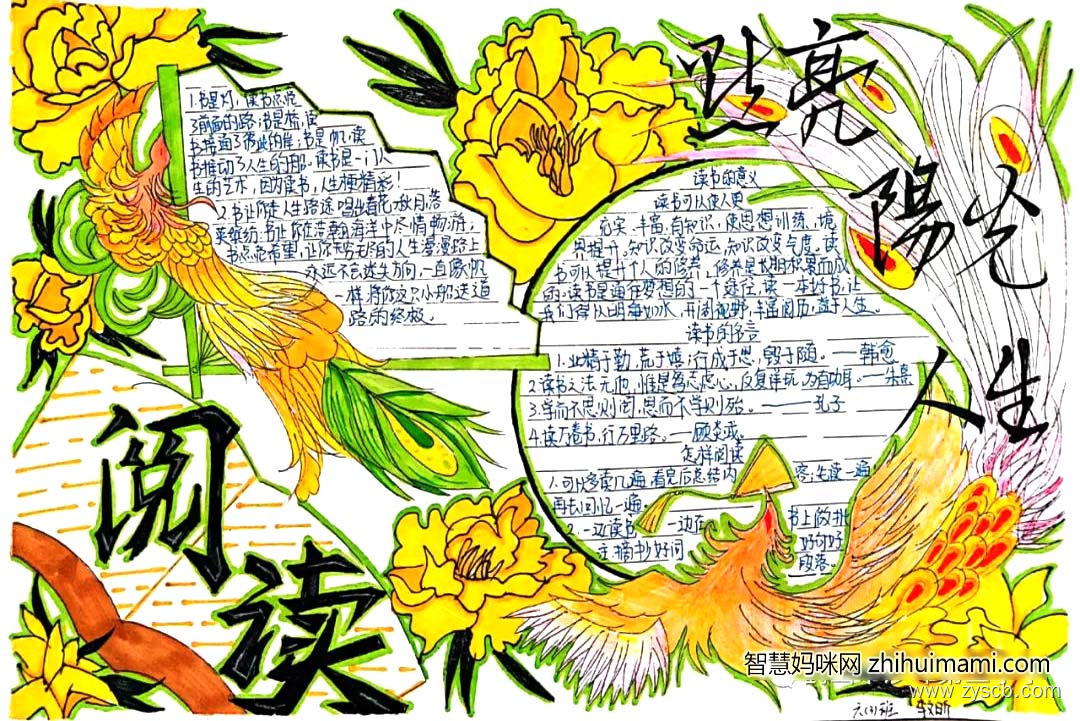 阅读
点亮
陽光
人生
1.书是灯,读书点亮
了前面的路;书是桥,读
书接通了彼此的岸;书是帆,读
书推动了人生的船。读书是一门人
生的艺术,因为读书,人生才精彩!
2.书让你走人生路途 唱出春花秋月,落
英缤纷,书让你在浩瀚海洋中尽情畅游,
书点亮希望,让你在穷尽的人生漫漫路上
永远不会迷失方向,一直像帆
一样将你这只小船送道
路的终极。
读书的意义
读书可以使人更
充实、丰富,有知识,使思想训练、境
界提升。知识改变命运,知识改变气度。读
书可以提升个人的修养,修养是长期积累而成
的。读书是通往梦想的一个途径,读一本好书,让
我们得以明净如水,开阔视野,丰富阅历,益于人生。
读书的名言
1.业精于勤,荒于嬉;行成于思,毁于随。——韩愈
2.读书之法无他,惟是笃志虚心,反复详玩,为有功耳。——朱熹
3.学而不思则罔,思而不学则殆。——孔子
4.读万卷书,行万里路。——顾炎武
怎样阅读
1.可以多读几遍,看完后总结内容;先读一遍
再去回忆一遍。
2.一边读书 一边在书上的批
注 摘抄好词 好句好
段落。
智慧妈咪网 zhihuimami.com
www.zyscb.com
六(3)班